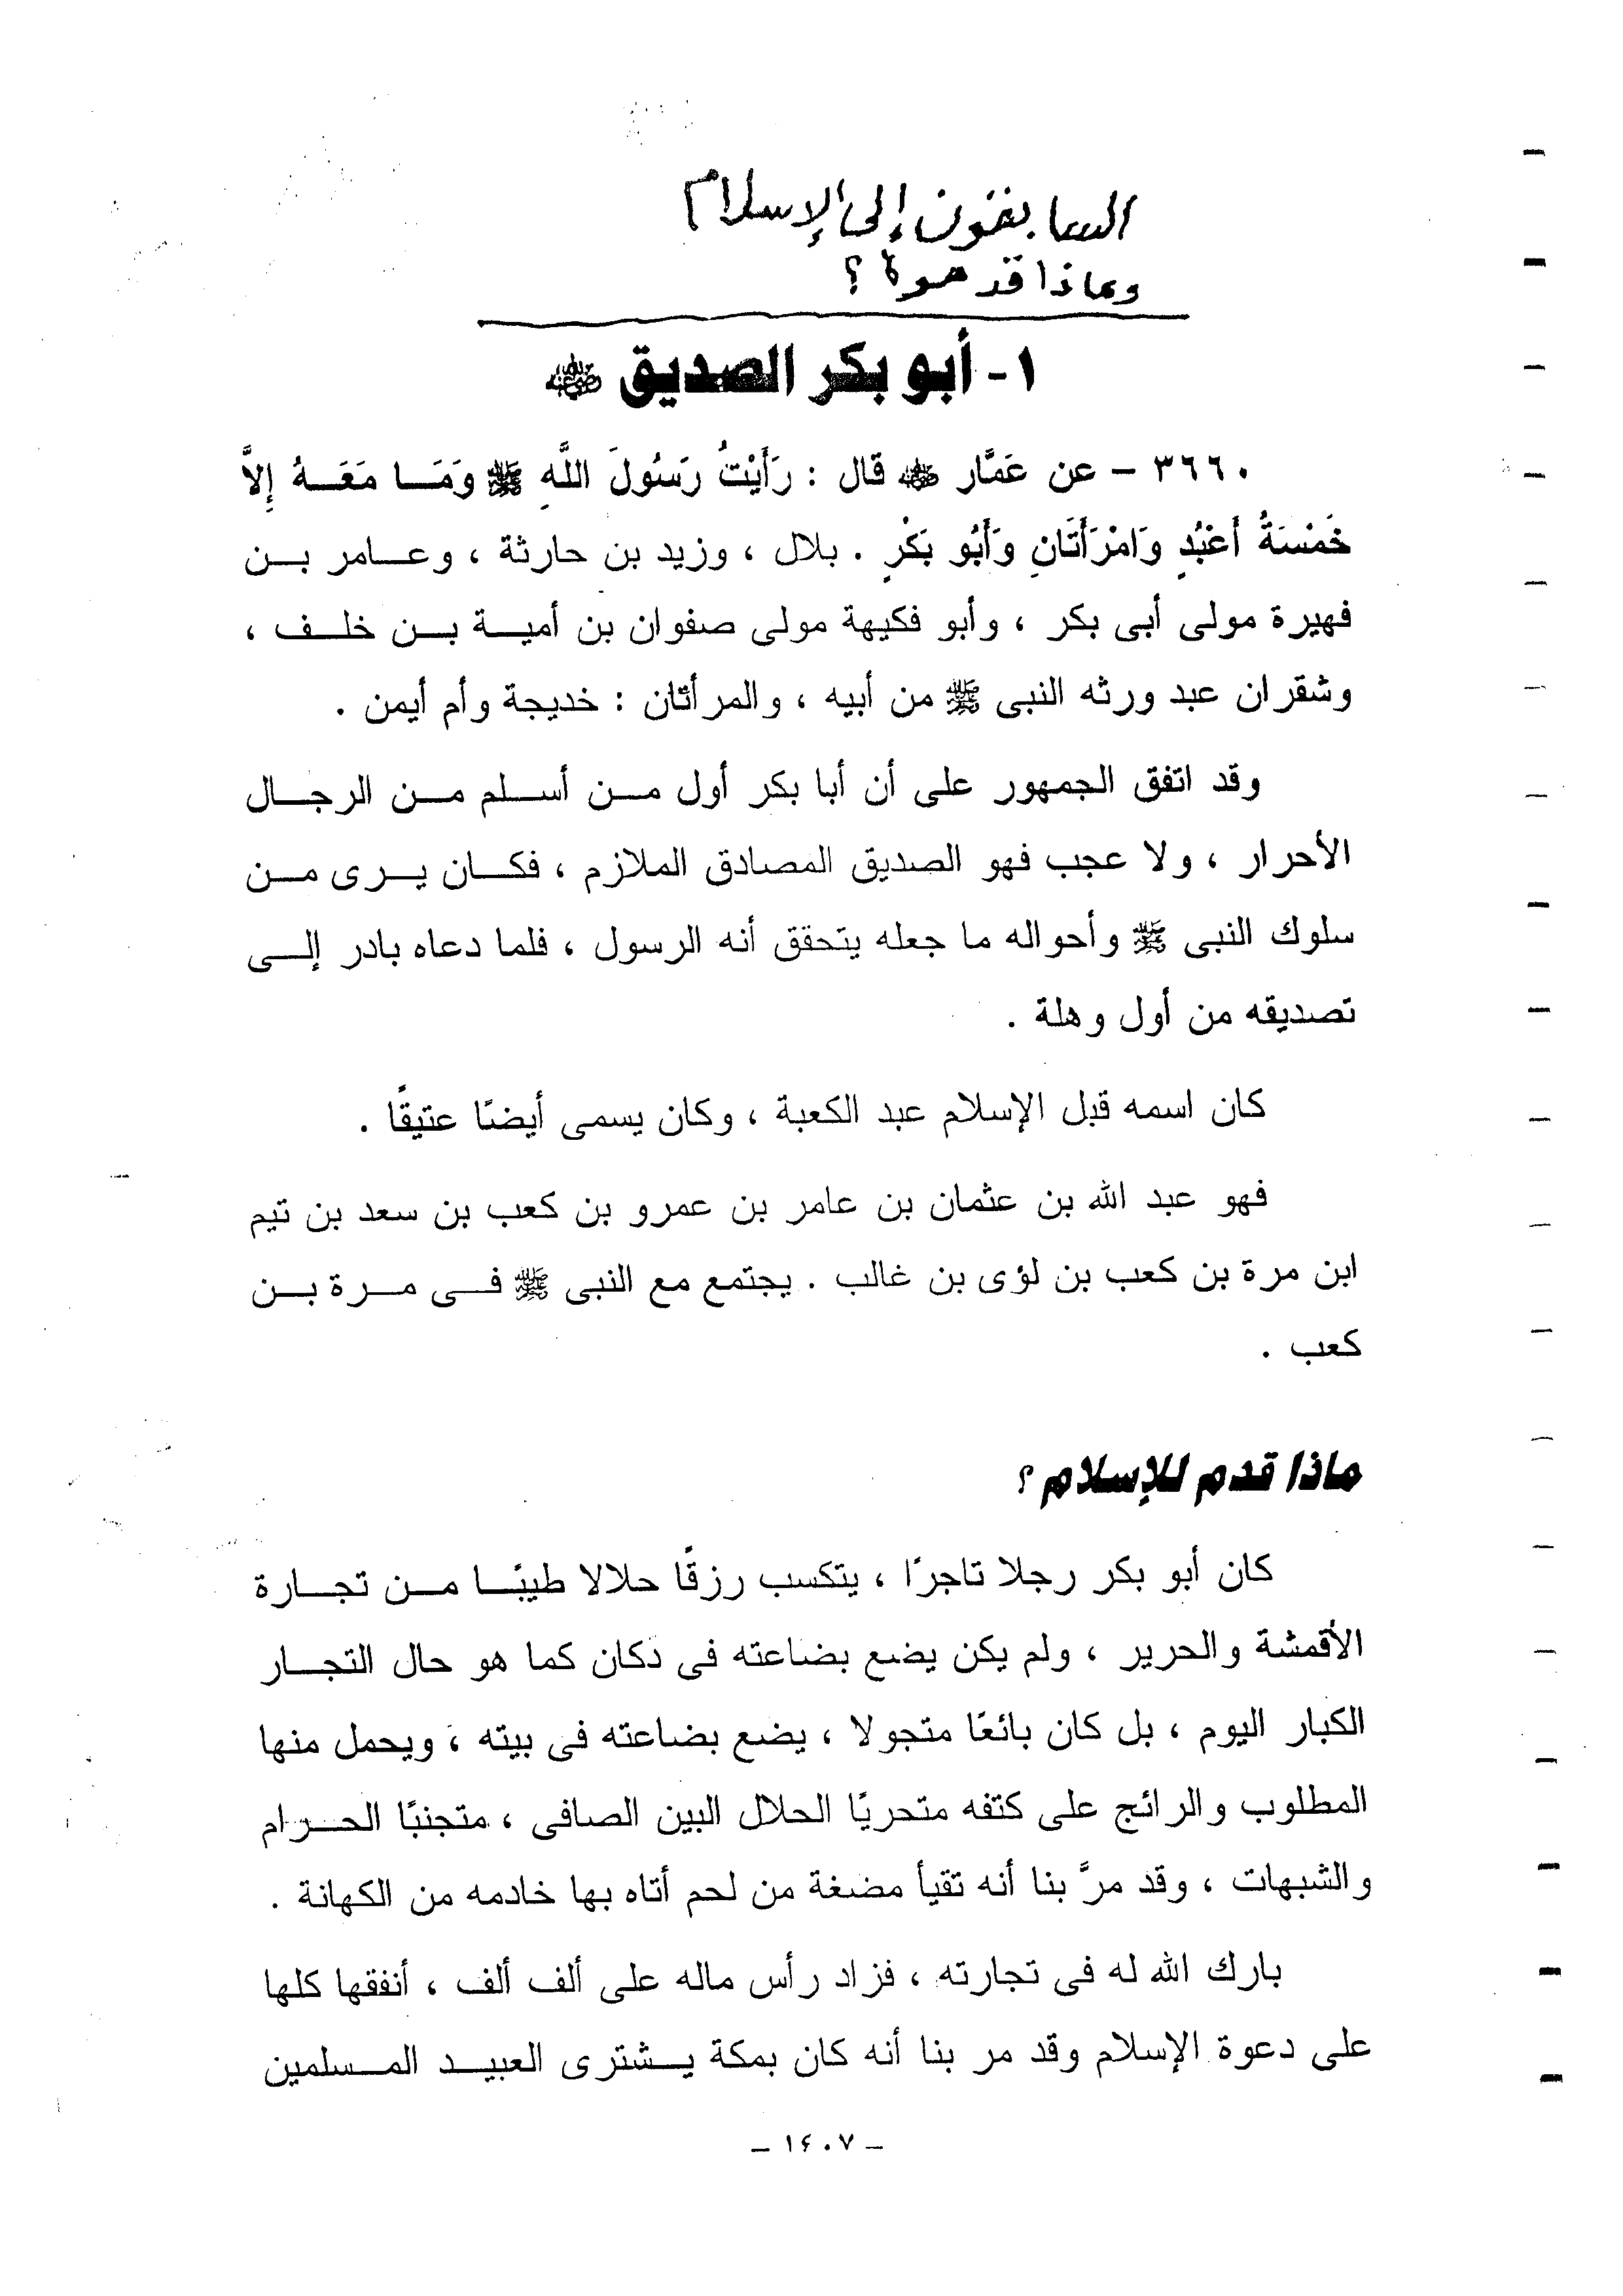 السابقون إلى الإسلام
وماذا قدموه ؟
١ - أبو بكر الصديق ﵁
٣٦٦٠ – عن عَمَّار ﵁ قال : رَأَيْتُ رَسُولَ اللَّهِ ﷺ وَمَا مَعَهُ إِلاَّ
خَمْسَةُ أَعْبُدٍ وَامْرَأَتَانِ وَأَبُو بَكْرٍ . بلال ، وزيد بن حارثة ، وعامر بن
فهيرة مولى أبى بكر ، وأبو فكيهة مولى صفوان بن أمية بن خلف ،
وشقران عبد ورثه النبى ﷺ من أبيه ، والمرأتان : خديجة وأم أيمن .
وقد اتفق الجمهور على أن أبا بكر أول من أسلم من الرجال
الأحرار ، ولا عجب فهو الصديق المصادق الملازم ، فكان يرى من
سلوك النبى ﷺ وأحواله ما جعله يتحقق أنه الرسول ، فلما دعاه بادر إلى
تصديقه من أول وهلة .
كان اسمه قبل الإسلام عبد الكعبة ، وكان يسمى أيضًا عتيقًا .
فهو عبد الله بن عثمان بن عامر بن عمرو بن كعب بن سعد بن تيم
ابن مرة بن كعب بن لؤى بن غالب . يجتمع مع النبى ﷺ فى مرة بن
كعب .
ماذا قدم للإسلام ؟
كان أبو بكر رجلا تاجرًا ، يتكسب رزقًا حلالا طيبًا من تجارة
الأقمشة والحرير ، ولم يكن يضع بضاعته فى دكان كما هو حال التجار
الكبار اليوم ، بل كان بائعًا متجولا ، يضع بضاعته فى بيته ، ويحمل منها
المطلوب والرائج على كتفه متحريًا الحلال البين الصافى ، متجنبًا الحرام
والشبهات ، وقد مرَّ بنا أنه تقيأ مضغة من لحم أتاه بها خادمه من الكهانة .
بارك الله له فى تجارته ، فزاد رأس ماله على ألف ألف ، أنفقها كلها
على دعوة الإسلام وقد مر بنا أنه كان بمكة يشترى العبيد المسلمين
– ١٤٠٧ –